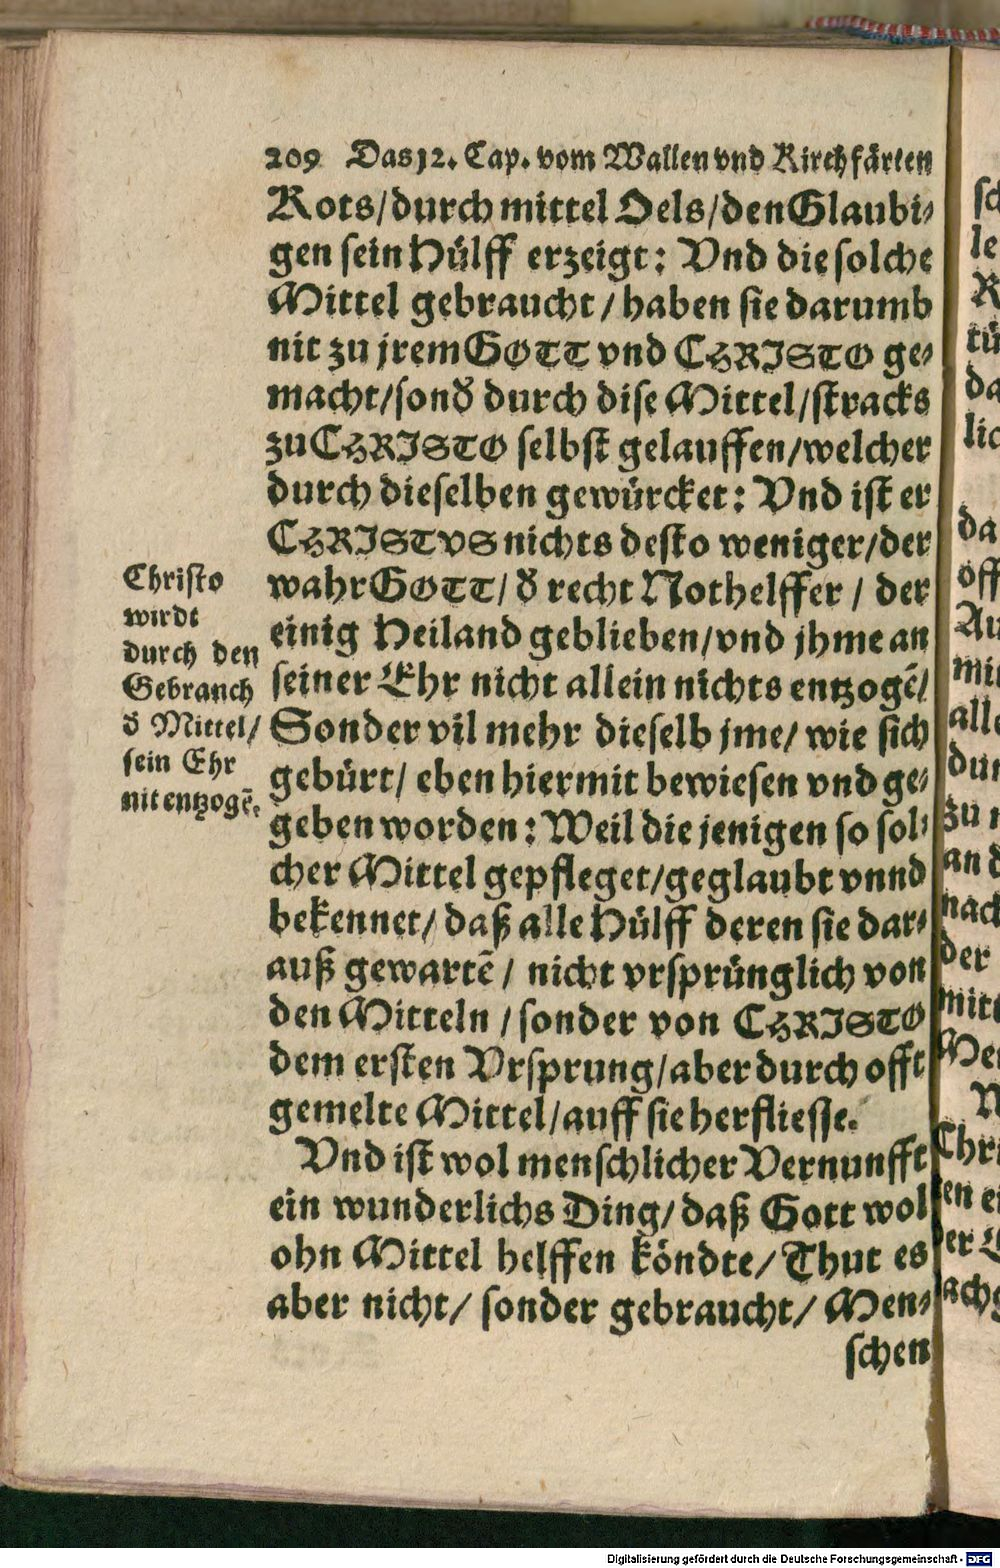 209 Das 12. Cap. vom Wallen vnd Kirchfärten
Rots/durch mittel Oels/den Glaubi-
gen sein Hülff erzeigt: Vnd die solche
Mittel gebraucht/haben sie darumb
nit zu jrem GOTT vnd CHRISTO ge-
macht/sonđ durch dise Mittel/stracks
zu CHRISTO selbst gelauffen/welcher
durch dieselben gewürcket: Vnd ist er
CHRISTVS nichts desto weniger/der
wahr GOTT/đ recht Nothelffer/der
einig Heiland geblieben/vnd jhme an
seiner Ehr nicht allein nichts entzogē/
Sonder vil mehr dieselb jme/wie sich
gebürt/eben hiermit bewiesen vnd ge-
geben worden: Weil die jenigen so sol-
cher Mittel gepfleget/geglaubt vnnd
bekennet/daß alle Hülff deren sie dar-
auß gewartē/nicht vrsprünglich von
den Mitteln/sonder von CHRISTO
dem ersten Vrsprung/aber durch offt
gemelte Mittel/auff sie herfliesse.
Vnd ist wol menschlicher Vernunfft
ein wunderlichs Ding/daß Gott wol
ohn Mittel helffen köndte/Thut es
aber nicht/sonder gebraucht/Men-
schen
Christo
wirdt
durch den
Gebrauch
đ Mittel/
sein Ehr
nit entzogē.
Digitalisierung gefördert durch die Deutsche Forschungsgemeinschaft - DFG